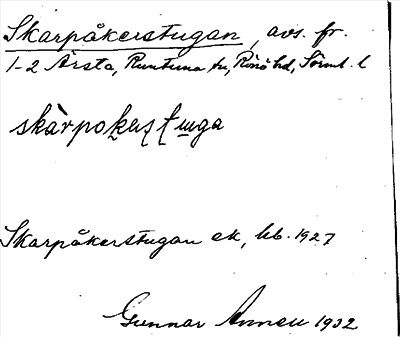 Skarpåkerstugan, avs. fr.
1-2 Årsta, Runtuna sn, Rönö hd, Sörml. l
skàrpokerstuga
Skarpåkerstugan ek, kb. 1927
Gunnar 1932